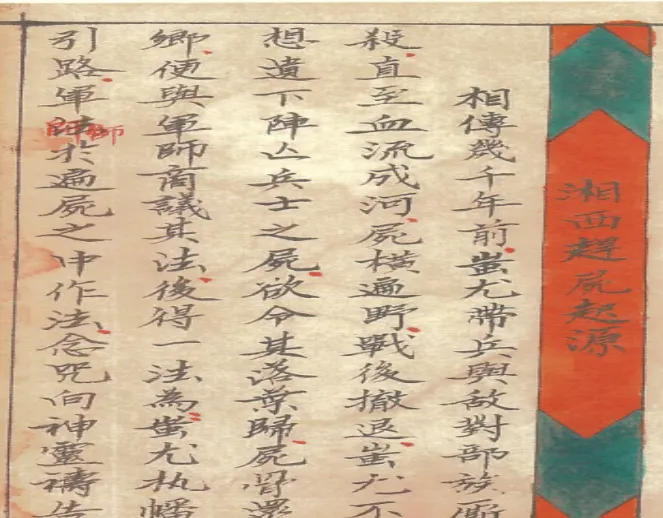 湘西趕屍起源
相傳幾千年前蚩尤帶兵與敵對部族厮
殺直至血流成河屍橫遍野戰後撤退蚩尤不
想遺下陣亡兵士之屍欲令其落葉歸屍骨還
鄉便與軍師商議其法後得一法為蚩尤執幡
引路軍師於遍屍之中作法念咒向神靈禱告